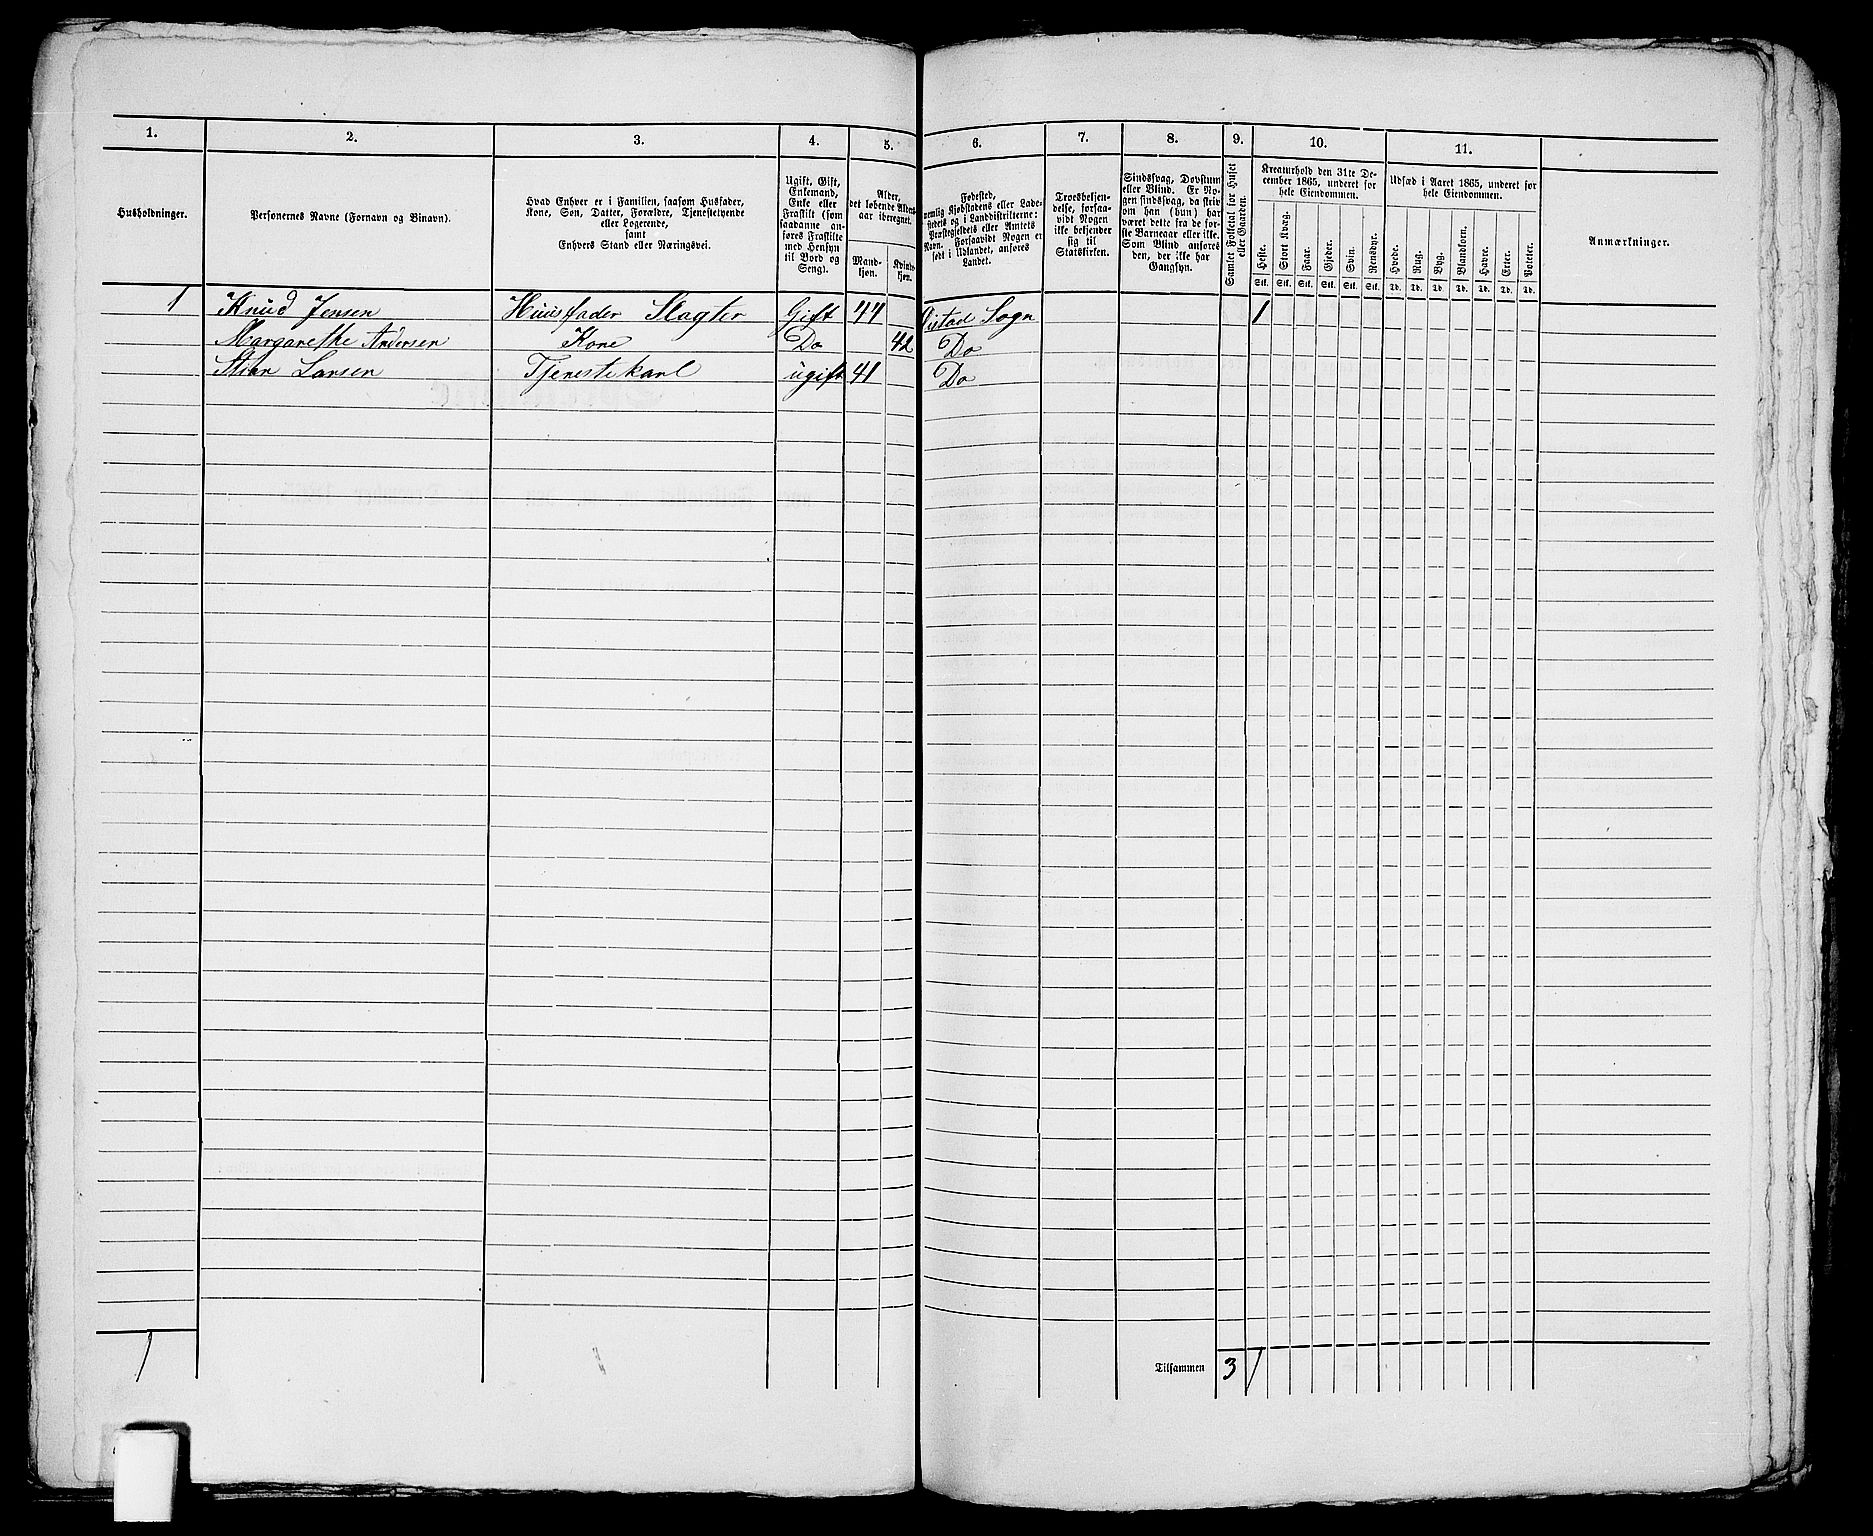 1. 2. 3. 4. 5. 6. 7. 8. 9. 10. 11.
Husholdninger.
Personernes Navne (Fornavn og Binavn).
Hvad Enhver er i Familien, saasom Husfader,
Kone, Søn, Datter, Forældre, Tjenestetyende
eller Logerende,
samt
Enhvers Stand eller Næringsvei.
Ugift, Gift,
Enkemand,
Enke eller
Fraskilt (som
saadanne an-
føres Fraskilte
med Hensyn
til Bord og
Seng).
Alder,
det løbende Alders-
aar iberegnet.
Mand-
kjøn.
Kvind-
kjøn.
Fødested,
nemlig Kjøbstadens eller Lade-
stedets og i Landdistrikterne:
Præstegjeldets eller Amtets
Navn. Forsaavidt Nogen er
født i Udlandet, anføres
Landet.
Troesbekjen-
delse, forsaa-
vidt Nogen
ikke bekjender
sig til
Statskirken.
Sindssvag, Døvstum
eller Blind. Er No-
gen sindssvag, da skriv
om han (hun) har
været dette fra de før-
ste Barneaar eller ikke.
Som Blind anføres
den, der ikke har
Gangsyn.
Samlet Folketal for Huset
eller Gaarden.
Kreaturhold den 31te De-
cember 1865, underet for
hele Eiendommen.
Heste. Stort Kvæg. Faar. Gjeder. Svin. Rensdyr.
Stk. Stk. Stk. Stk. Stk. Stk.
Udsæd i Aaret 1865, underet for
hele Eiendommen.
Hvede. Rug. Byg. Blandkorn. Havre. Erter. Poteter.
Td. Td. Td. Td. Td. Td. Td.
Anmærkninger.
1 Knud Jensen Huusfader Slagter Gift 44 Øistad Sogn 1
Margarethe Andersen Kone Do 42 Do
Stian Larsen Tjenestekarl ugift 41 Do
1 Tilsammen 3 1